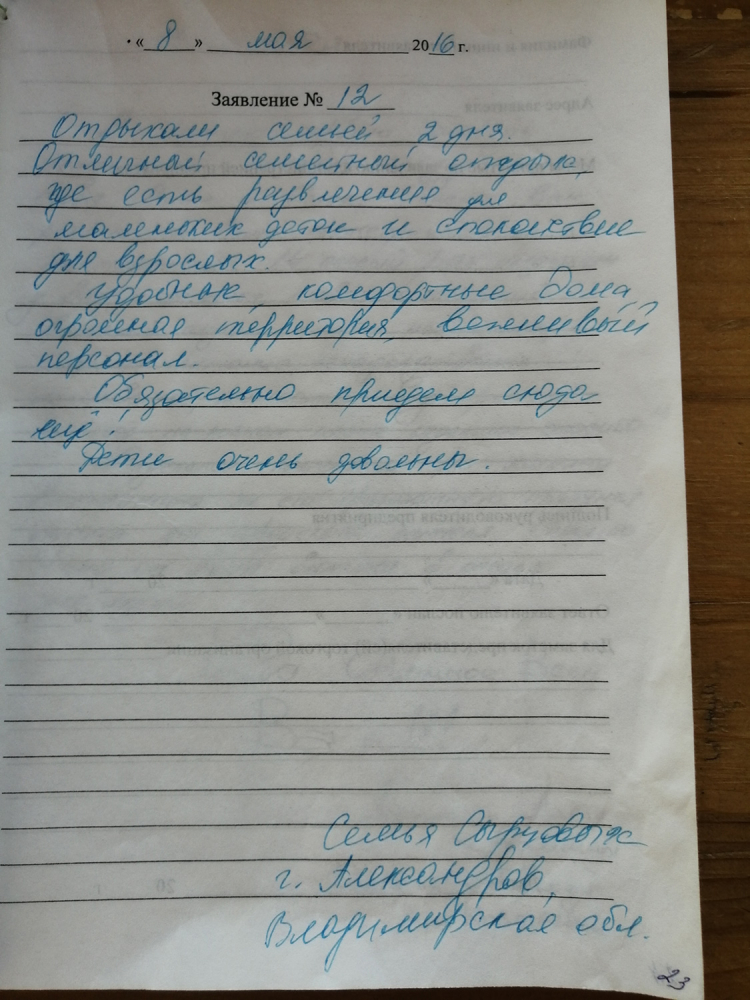 « 8 » мая 2016 г.
Заявление № 12
Отдыхали семьёй 2 дня.
Отличный семейный отдых,
где есть развлечения для
маленьких деток и спокойствие
для взрослых.
Удобные, комфортные дома,
огромная территория, вежливый
персонал.
Обязательно приедем сюда
ещё!
Дети очень довольны.
Семья
г. Александров,
Владимирская обл.
23